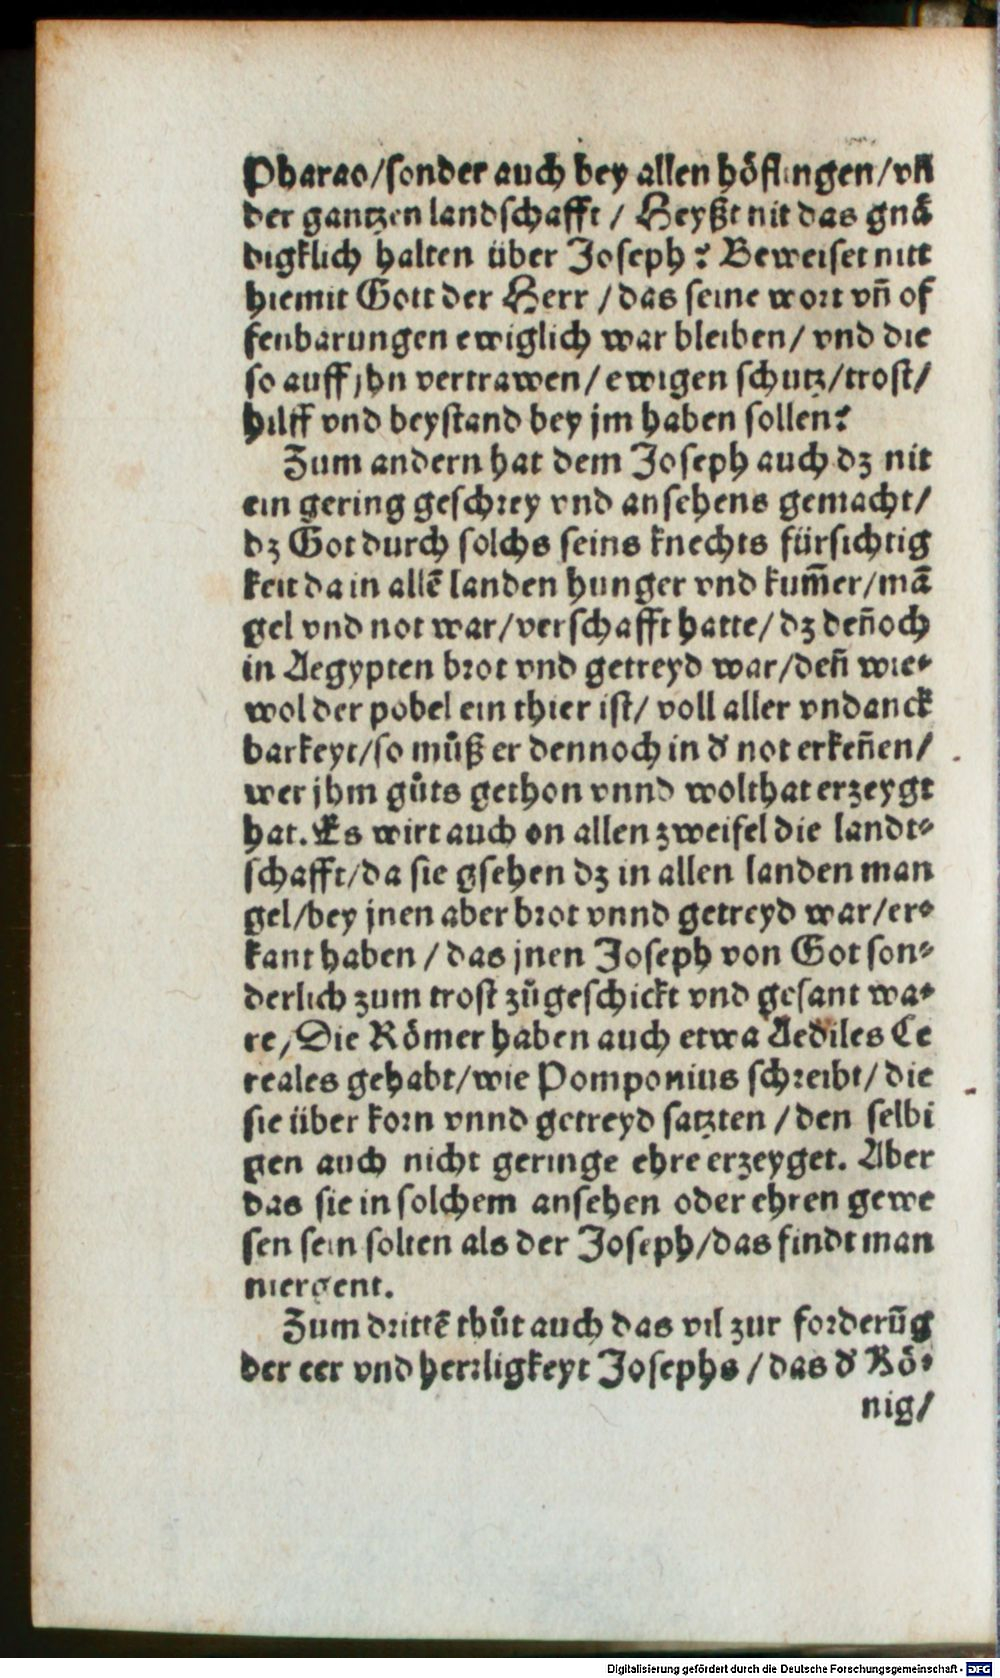 Pharao/sonder auch bey allen höflingen/vñ
der gantzen landschafft / Heyßt nit das gnã
digklich halten über Joseph? Beweiset nitt
hiemit Gott der Herr /das seine wort vñ of
fenbarungen ewiglich war bleiben/ vnd die
so auff jhn vertrawen/ewigen schutz/trost/
hilff vnd beystand bey jm haben sollen?
Zum andern hat dem Joseph auch dz nit
ein gering geschrey vnd ansehens gemacht/
dz Got durch solchs seins knechts fürsichtig
keit da in allẽ landen hunger vnd kum̃er/mã
gel vnd not war/verschafft hatte/dz deñoch
in Aegypten brot vnd getreyd war/deñ wie⸗
wol der pobel ein thier ist/ voll aller vndanck
barkeyt/so můß er dennoch in d' not erkeñen/
wer jhm gůts gethon vnnd wolthat erzeygt
hat. Es wirt auch on allen zweifel die landt⸗
schafft/da sie gsehen dz in allen landen man
gel/bey jnen aber brot vnnd getreyd war/er⸗
kant haben /das jnen Joseph von Got son⸗
derlich zum trost zůgeschickt vnd gesant wa⸗
re/Die Römer haben auch etwa Aediles Ce
reales gehabt/wie Pomponius schreibt/die
sie über korn vnnd getreyd satzten /den selbi
gen auch nicht geringe ehre erzeyget. Aber
das sie in solchem ansehen oder ehren gewe
sen sein solten als der Joseph/das findt man
niergent.
Zum drittẽ thůt auch das vil zur forderũg
der eer vnd herrligkeyt Josephs /das d' Kö⸗
nig/
Digitalisierung gefördert durch die Deutsche Forschungsgemeinschaft - DFG